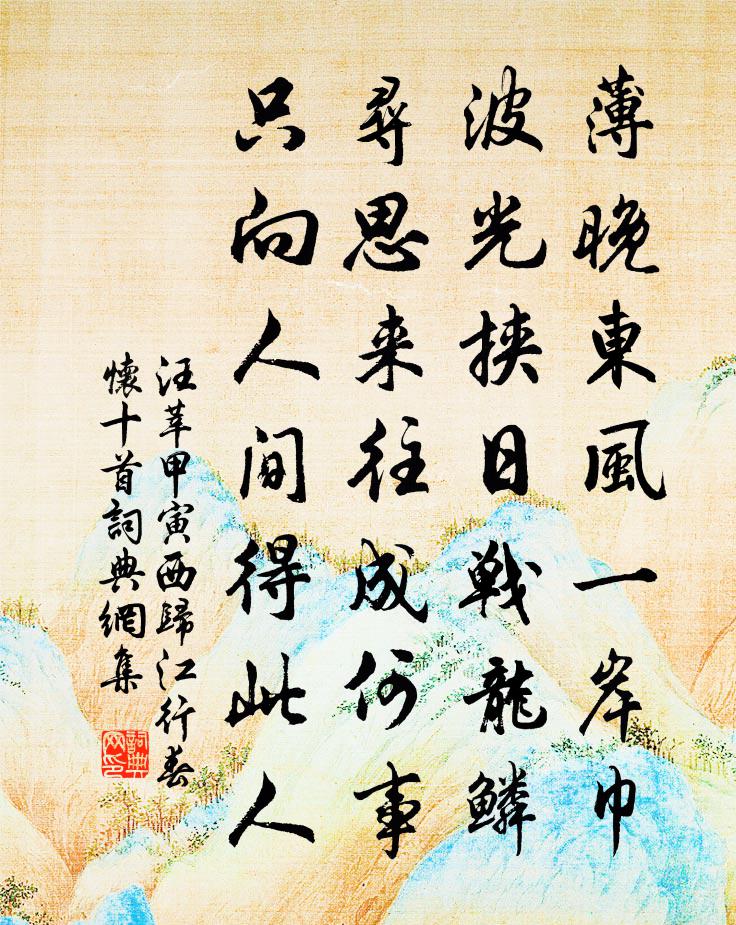 薄晚東風一岸巾
波光挾日戰龍鱗
尋思来往成何事
只向人間得此人
汪莘甲寅西歸江行春
懷十首詞典網集
詞典網印